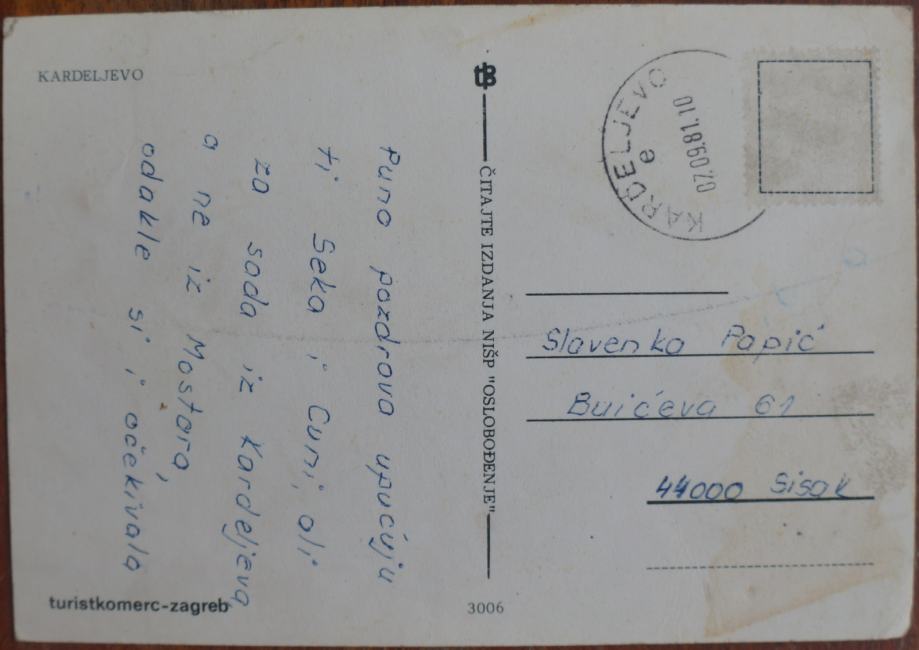 KARDELJEVO
Puno pozdrava upućuju
ti Seka i Cuni, ali
za sada iz Kardeljeva
a ne iz Mostara,
odakle si i očekivala
turistkomerc-zagreb
ČITAJTE IZDANJA NIŠP "OSLOBOĐENJE"
3006
KARDELJEVO
e
07.09.81.10
Slavenka Papić
Buićeva 61
44000 Sisak